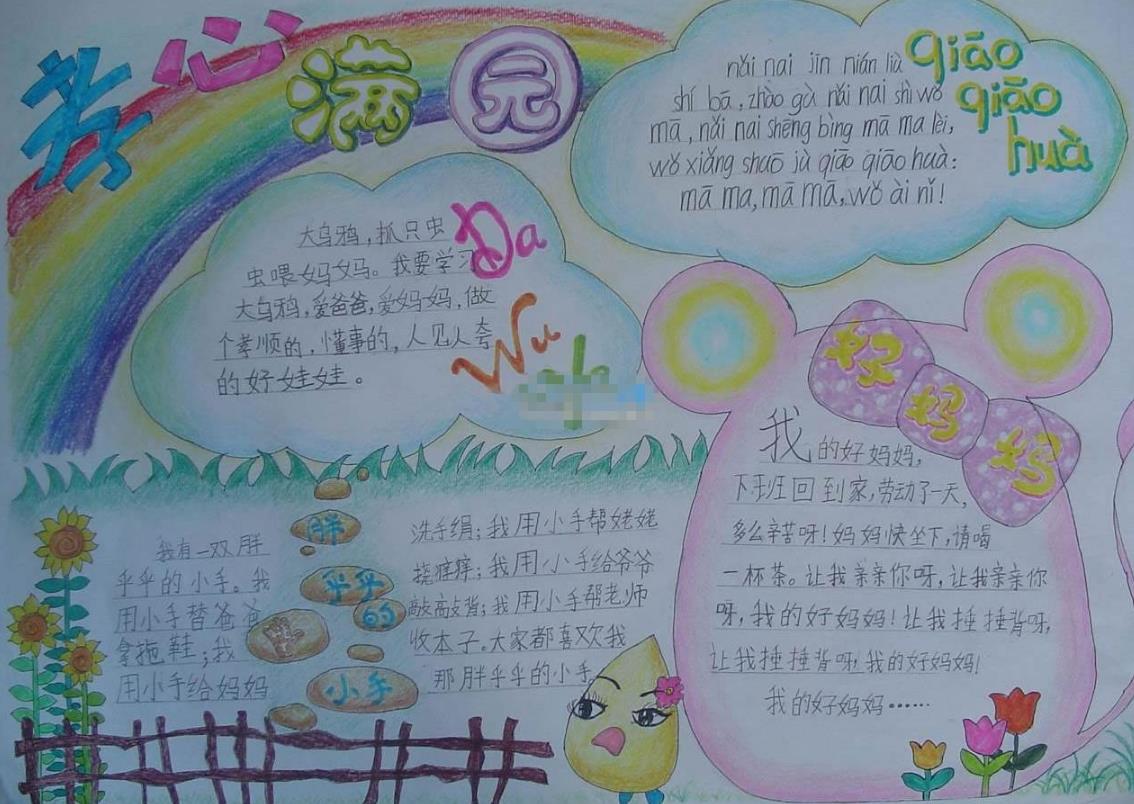 孝心满园
qiāo
qiāo
huà
nǎi nai jīn nián liù
shí bā, zhào gù nǎi nai shì wǒ
mā, nǎi nai shēng bìng mā ma lèi,
wǒ xiǎng shuō jù qiāo qiāo huà:
mā ma, mā mā, wǒ ài nǐ!
Da
Wu
大乌鸦，抓只虫
虫喂妈妈。我要学习
大乌鸦，爱爸爸，爱妈妈，做
个孝顺的，懂事的，人见人夸
的好娃娃。
好妈妈
我的好妈妈，
下班回到家，劳动了一天，
多么辛苦呀！妈妈快坐下，请喝
一杯茶。让我亲亲你呀，让我亲亲你
呀，我的好妈妈！让我捶捶背呀，
让我捶捶背呀，我的好妈妈！
我的好妈妈……
胖
乎乎
的
小手
我有一双胖
乎乎的小手。我
用小手替爸爸
拿拖鞋；我
用小手给妈妈
洗手绢；我用小手帮姥姥
挠痒痒；我用小手给爷爷
敲敲背；我用小手帮老师
收本子。大家都喜欢我
那胖乎乎的小手